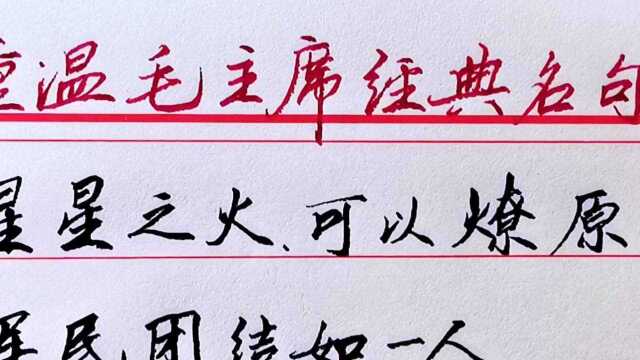 重温毛主席经典名句
星星之火、可以燎原
军民团结如一人